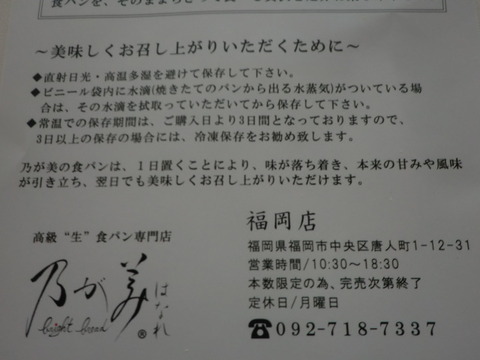 ～美味しくお召し上がりいただくために～
◆直射日光・高温多湿を避けて保存して下さい。
◆ビニール袋内に水滴(焼きたてのパンから出る水蒸気)がついている場
合は、その水滴を拭取っていただいてから保存して下さい。
◆常温での保存期間は、ご購入日より3日間となっておりますので、
3日以上の保存の場合には、冷凍保存をお勧め致します。
乃が美の食パンは、１日置くことにより、味が落ち着き、本来の甘みや風味
が引き立ち、翌日でも美味しくお召し上がりいただけます。
高級“生”食パン専門店
乃が美
はなれ
bright bread
®
福岡店
福岡県福岡市中央区唐人町1-12-31
営業時間/10:30～18:30
本数限定の為、完売次第終了
定休日/月曜日
☎092-718-7337